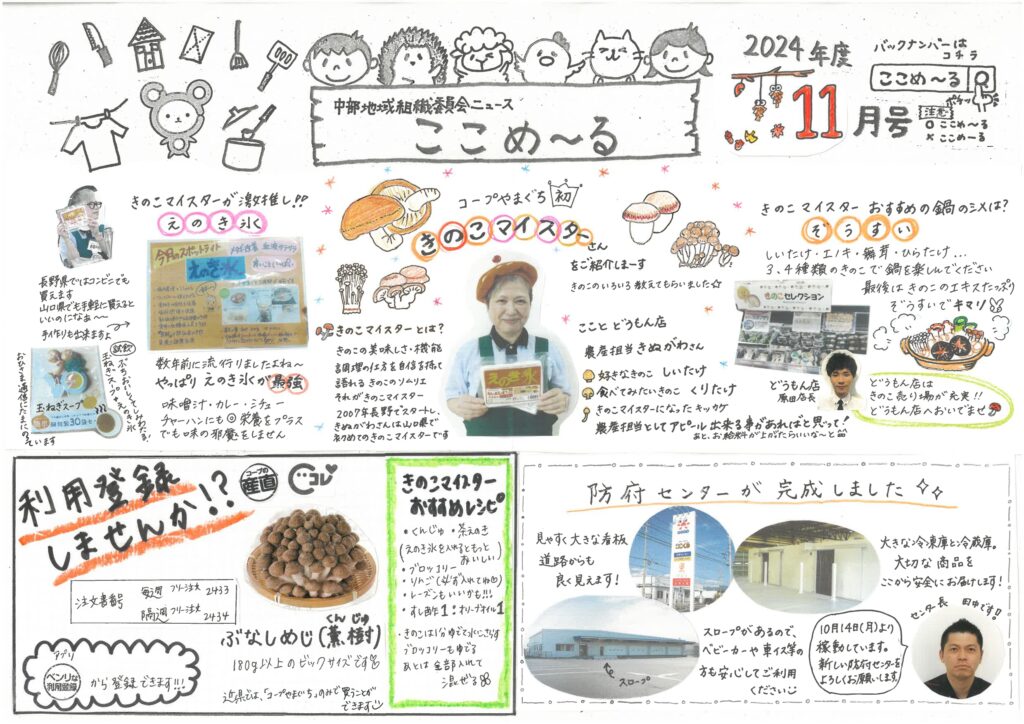 中部地域組織委員会ニュース
ここめ～る
2024年度
11月号
バックナンバーは
コチラ
ここめ～る
ポチッ
注意
○ ここめ～る
× ここめーる
きのこマイスターが激推し!!
えのき氷
長野県ではコンビニでも
買えます
山口県でも手軽に買えると
いいのになぁ～
手作りも出来ますよ
今月のスポットライト
えのき氷
試飲
玉ねぎスープ
数年前に流行りましたよね～
やっぱりえのき氷が最強
味噌汁・カレー・シチュー
チャーハンにも◎栄養をプラス
でも味の邪魔をしません
コープやまぐち初
きのこマイスターさん
をご紹介しまーす
きのこのいろいろ教えてもらいました☆
きのこマイスターとは?
きのこの美味しさ・機能
言周理の仕方を自信を持って
語れるきのこのソムリエ
それがきのこマイスター
2007年長野でスタートし、
きぬがわさんは山口県で
初めてのきのこマイスターです
えのき氷
ことどうもん店
農産担当きぬがわさん
好きなきのこ しいたけ
食べてみたいきのこ くりたけ
きのこマイスターになったキッカケ
農産担当としてアピール出来る事があればと思って!
あと、お給料が上がったらいいな～と
きのこマイスターおすすめの鍋のシメは?
ぞうすい
しいたけ・エノキ・舞茸・ひらたけ...
3、4種類のきのこで鍋を楽しんでください
最後はきのこのエキスたっぷり
ぞうすいでキマリ
きのこセレクション
どうもん店
原田店長
どうもん店は
きのこ売り場が充実!!
どうもん店へおいでませ
利用登録
しませんか!?
コープの
産直
コレ
注文書番号
毎週 フリー注文 2433
隔週 フリー注文 2434
アプリ
ベンリな
利用登録
から登録できます!!!
ぶなしめじ(薫樹)
くんじゅ
180g以上のビックサイズです
近県では、「コープやまぐち」のみで買うことが
できます
きのこマイスター
おすすめレシピ
・くんじゅ・茶えのき
(えのき氷を入れるともっと
おいしい)
・ブロッコリー
・リンゴ(必ず入れてね)
・レーズンもいいかも!!!
・すし酢1:オリーブオイル1
・きのこは1分ゆでて氷にさらす
ブロッコリーもゆでる
あとは全部入れて
混ぜる
防府センターが完成しました
見やすく大きな看板
道路からも
良く見えます!
大きな冷凍庫と冷蔵庫。
大切な商品を
ここから安全にお届けします!
スロープ
スロープがあるので、
ベビーカーや車イス等の
方も安心してご利用
ください
10月14日(月)より
稼動しています。
新しい防府センターを
よろしくお願いします
センター長 田中です!!